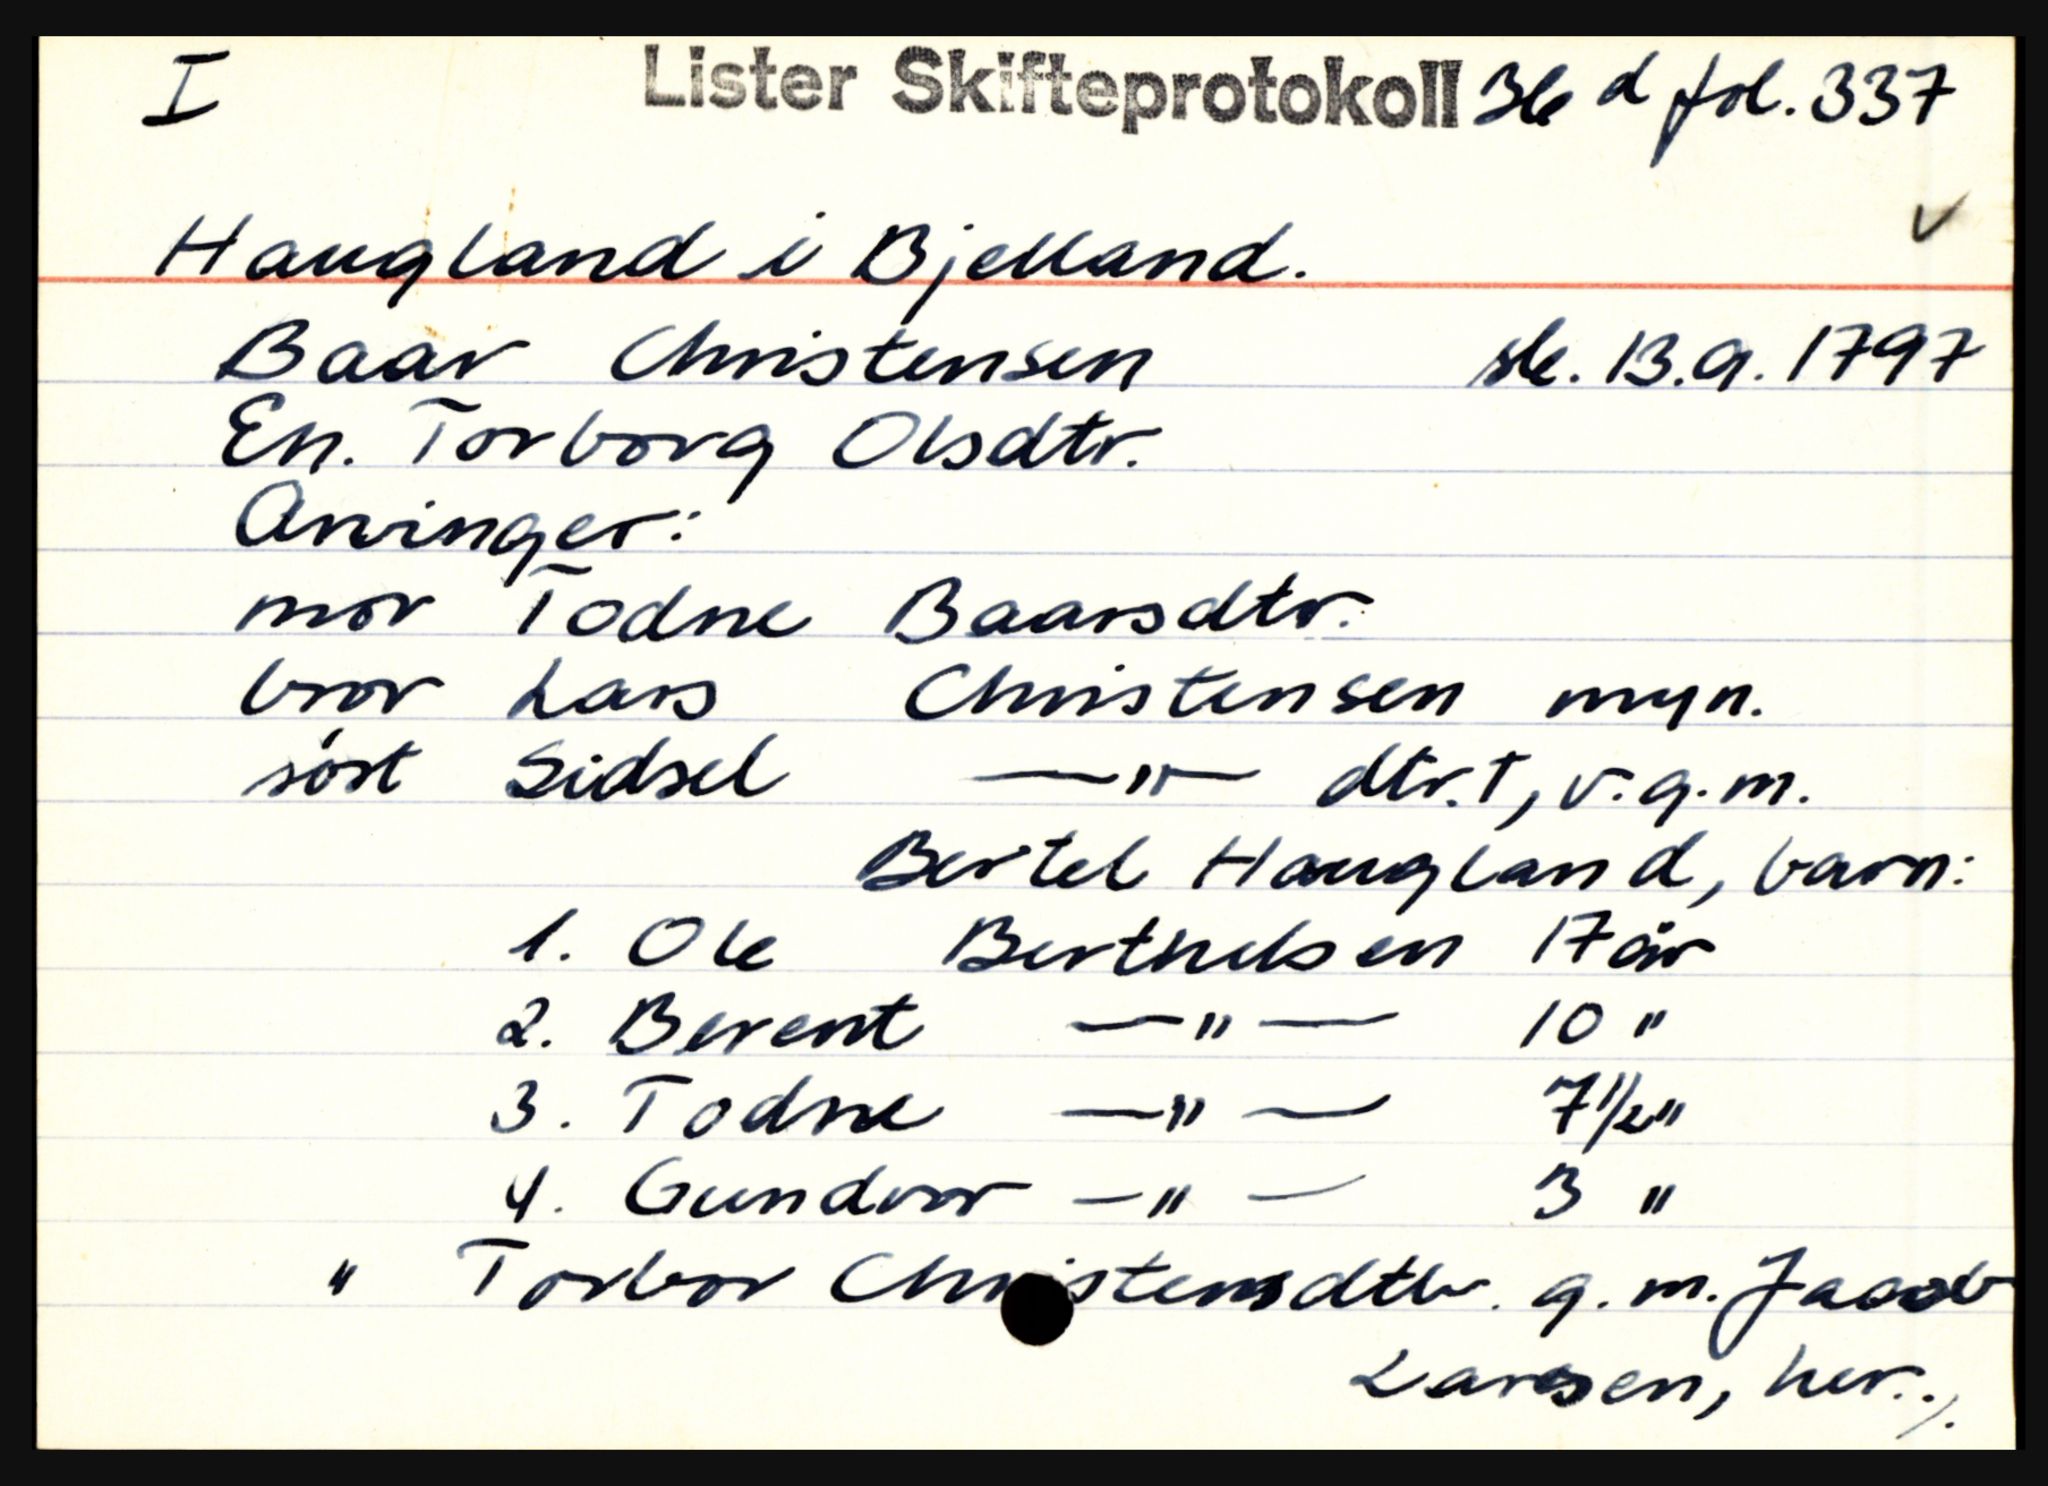 I Lister Skifteprotokoll 36 d fol. 337
v
Haugland i Bjelland.
Baar Christensen sk. 13.9.1797
En. Torborg Olsdtr.
Arvinger:
mor Todne Baarsdtr.
bror Lars Christensen myn.
søst Sidsel —"— dtr. †, v.g.m.
Bertel Haugland, barn:
1. Ole Berthelsen 17 år
2. Berent —"— 10 "
3. Todne —"— 7 1/2 "
4. Gundvor —"— 3 "
" Torbor Christensdtr. g.m. Jacob
Larsen, her.